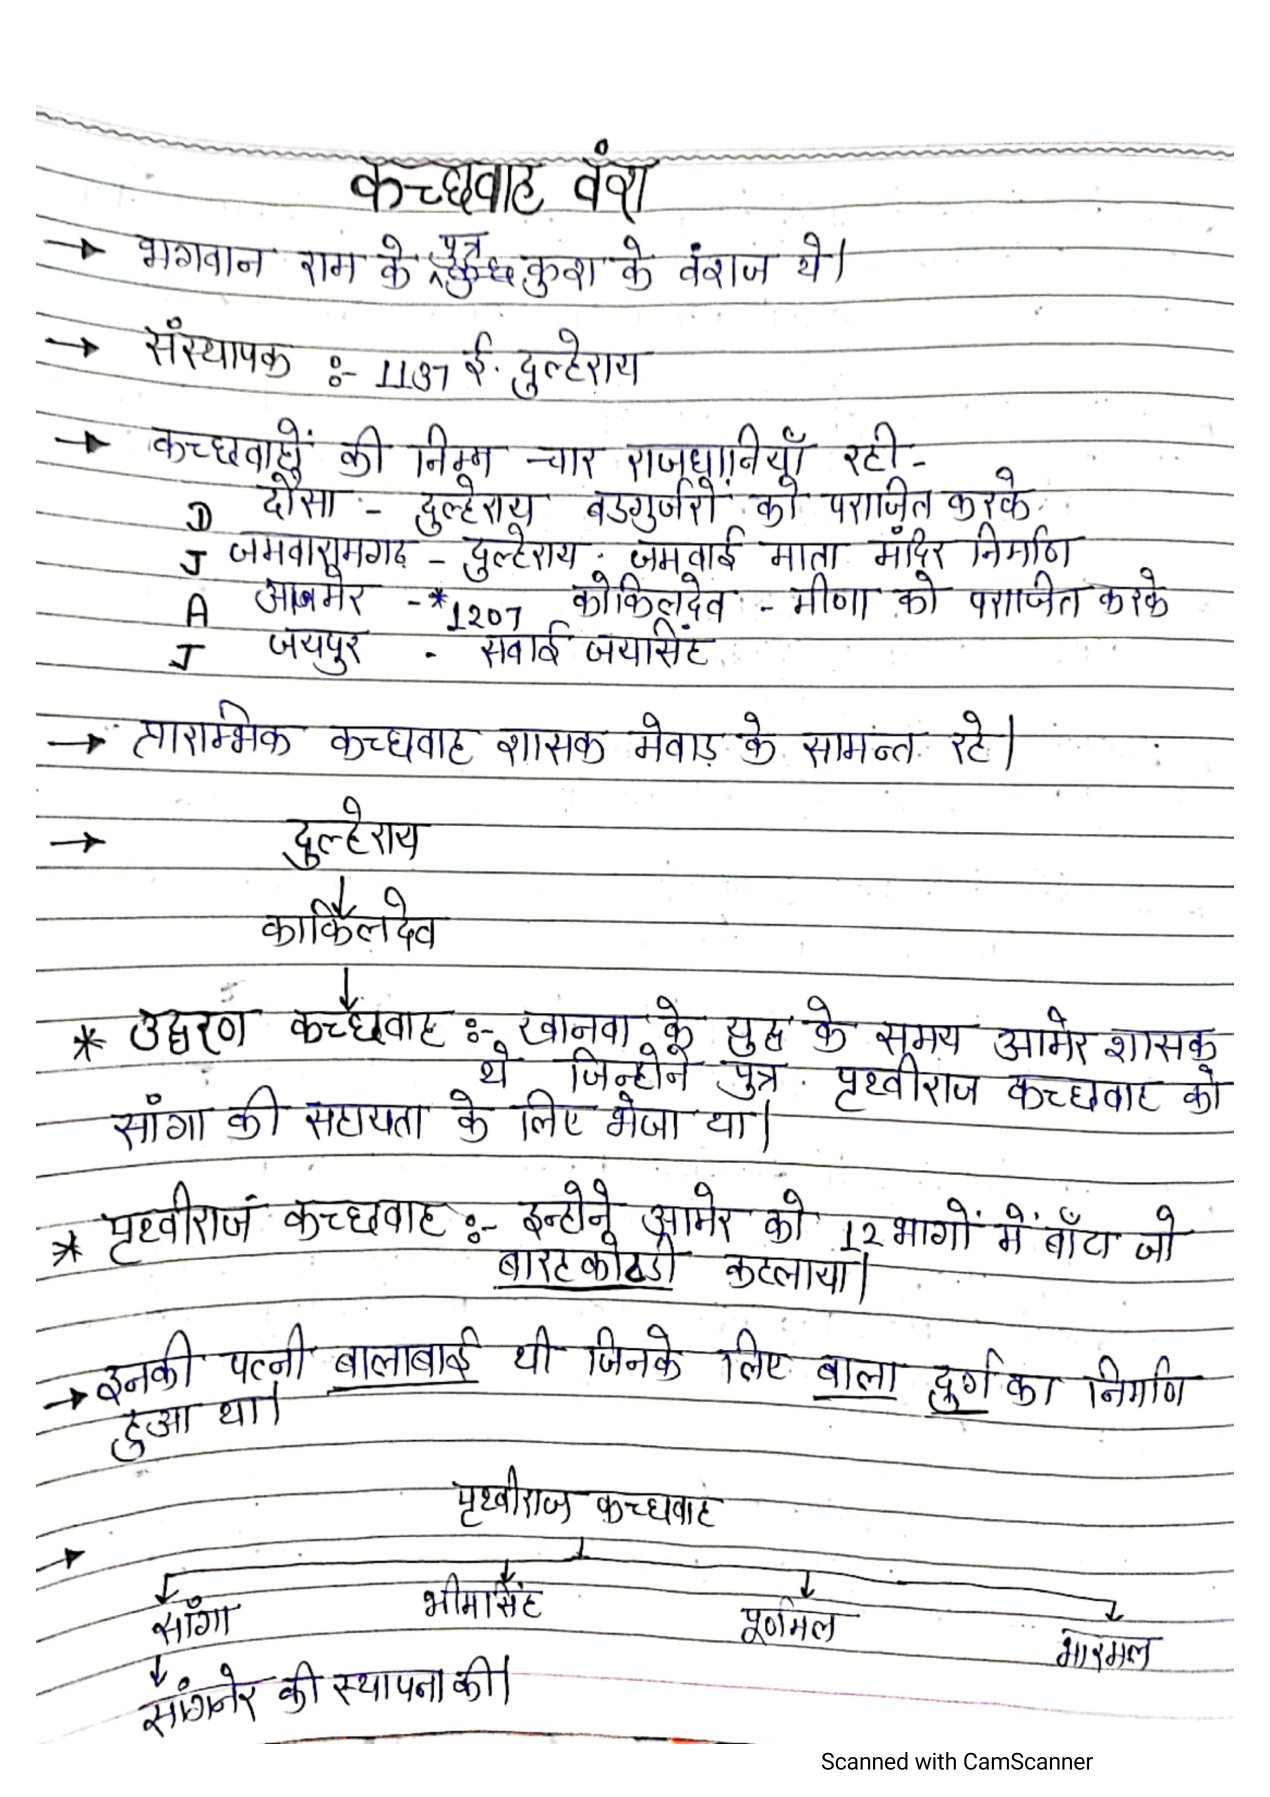 कच्छवाह वंश
→ भगवान राम के पुत्र कुश के वंशज थे।
→ संस्थापक :- 1137 ई. दुल्हेराय
→ कच्छवाहों की निम्न चार राजधानियाँ रही -
D दौसा - दुल्हेराय बडगुर्जरों को पराजित करके
J जमवारामगढ - दुल्हेराय . जमवाई माता मंदिर निर्माण
A आमेर - *1207 कोकिलदेव - मीणा को पराजित करके
J जयपुर - सवाई जयसिंह
→ प्रारम्भिक कच्छवाह शासक मेवाड़ के सामन्त रहे।
→ दुल्हेराय
↓
काकिलदेव
↓
* उद्धरण कच्छवाह :- खानवा के युद्ध के समय आमेर शासक
थे जिन्होने पुत्र पृथ्वीराज कच्छवाह को
साँगा की सहायता के लिए भेजा था।
* पृथ्वीराज कच्छवाह :- इन्होने आमेर को 12 भागों में बाँटा जो
बारहकोठडी कहलाया।
→ इनकी पत्नी बालाबाई थी जिनके लिए बाला दुर्ग का निर्माण
हुआ था।
पृथ्वीराज कच्छवाह
→
साँगा भीमसिंह पूर्णमल भारमल
↓
सांगानेर की स्थापना की।
Scanned with CamScanner